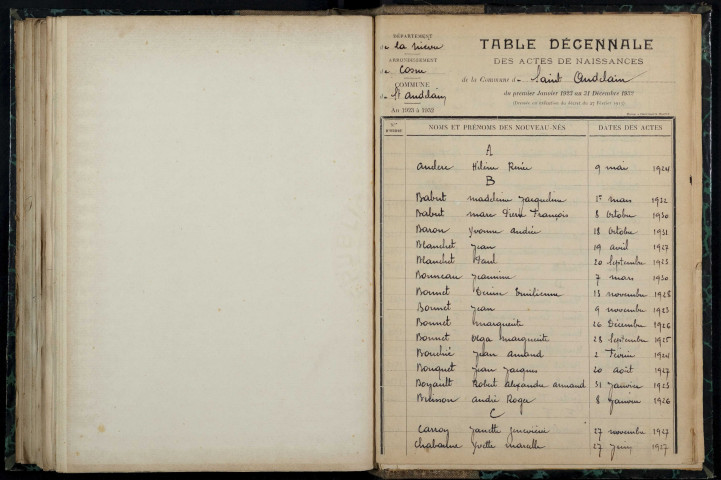 DÉPARTEMENT
de la Nièvre
ARRONDISSEMENT
de Cosne
COMMUNE
de St Andelain
An 1923 à 1932
TABLE DÉCENNALE
DES ACTES DE NAISSANCES
de la Commune de Saint Andelain
du premier Janvier 1923 au 31 Décembre 1932
(Dressée en exécution du décret du 27 Février 1912)
Nos D'ORDRE NOMS ET PRÉNOMS DES NOUVEAU-NÉS DATES DES ACTES
A
Hélène Renée 9 mai 1924
B
Babut madeleine Jacqueline 1er mars 1932
Babut marc Pierre François 8 Octobre 1930
Baron Yvonne Andrée 18 Octobre 1931
Blanchet Jean 19 avril 1927
Blanchet Paul 20 Septembre 1923
Bonneau Jeannine 7 mars 1930
Bonnet Denise Emilienne 13 novembre 1928
Bonnet Jean 9 novembre 1923
Bonnet marguerite 26 Décembre 1926
Bonnet Olga marguerite 28 Septembre 1925
Bouchié Jean Armand 2 Février 1924
Bouquet Jean Jacques 20 août 1927
Boyault Robert Alexandre armand 31 Janvier 1923
Buisson andré Roger 8 Janvier 1926
C
Carroy Janette Geneviève 27 novembre 1927
Chabanne Yvette marcelle 27 Juin 1927